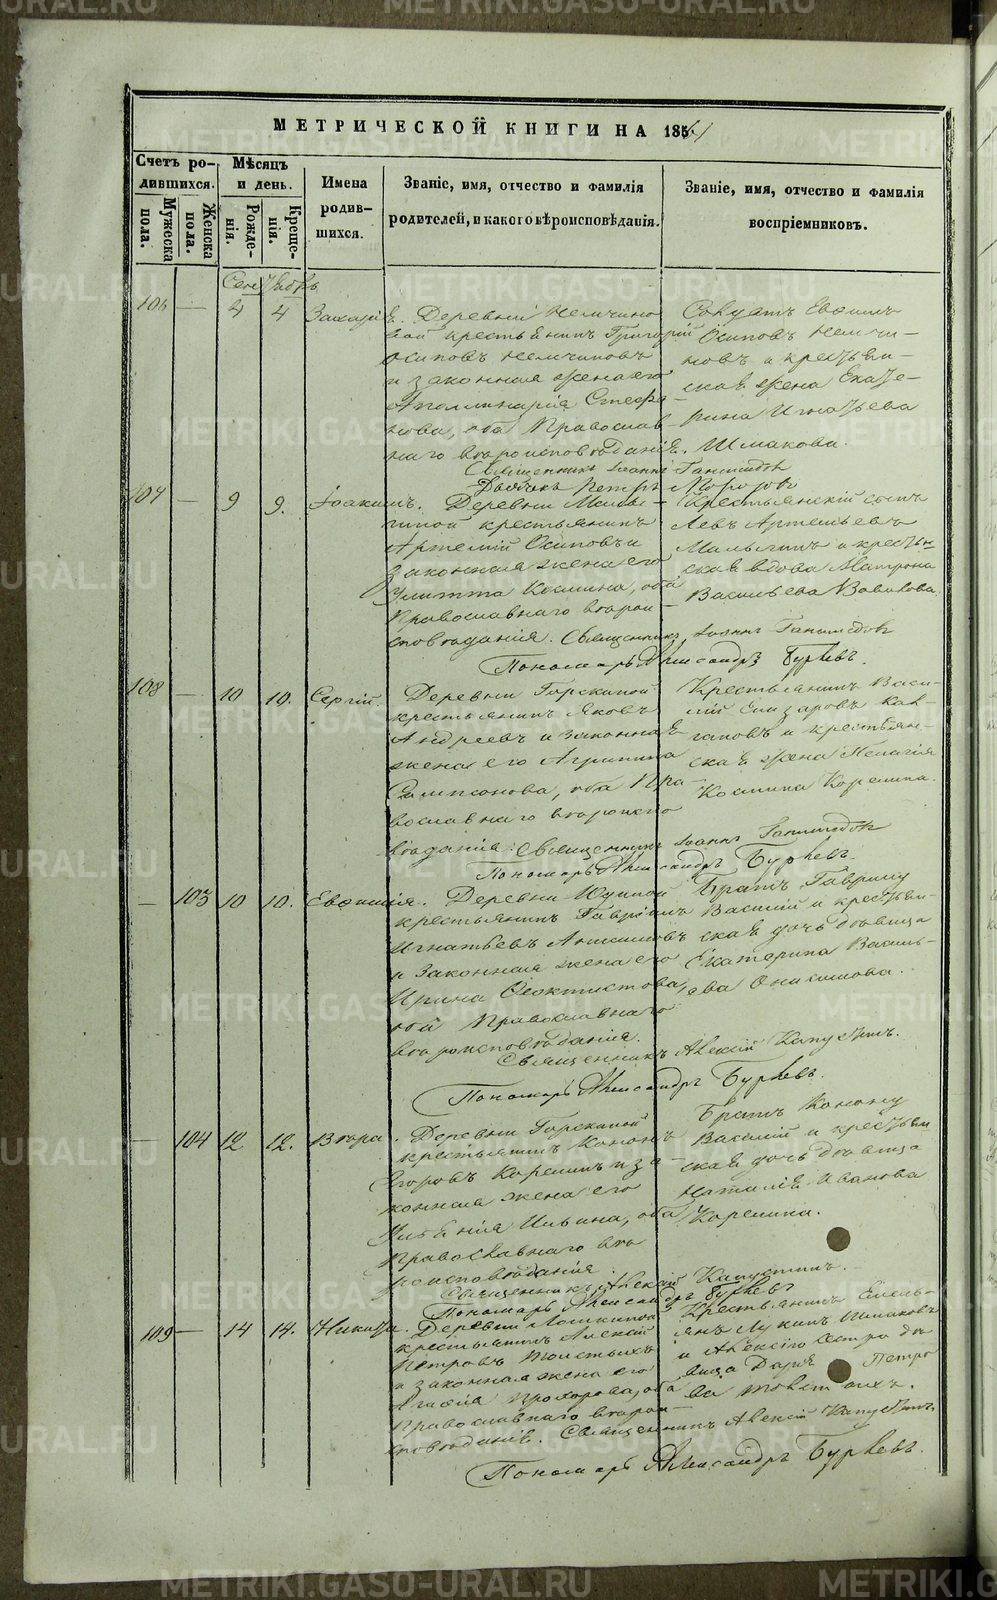 МЕТРИЧЕСКОЙ КНИГИ НА 1861
Счетъ родившихся.
Мужеска пола.
Женска пола.
Мѣсяцъ и день.
Рожденія.
Крещенія.
Имена родившихся.
Званіе, имя, отчество и фамилія родителей, и какого вѣроисповѣданія.
Званіе, имя, отчество и фамилія воспріемниковъ.
Сентябрь
106 — 4 4
Деревни Немчиновой крестьянинъ Григорій
Осиповъ Немчиновъ
и законная жена его
Аполлинарія Стефанова, оба Православнаго вѣроисповѣданія.
Евѳимъ
Осиповъ Немчиновъ и крестьянская жена Екатерина Игнатьева
Шмакова.
Священникъ Іоаннъ Ганимедовъ
Дьячокъ Петръ
107 — 9 9. Іоакимъ.
Деревни
крестьянинъ
Артемій Осиповъ и
законная жена его
Улитта Космина, оба
Православнаго вѣроисповѣданія.
Крестьянскій сынъ
Левъ Артемьевъ
Малыгинъ и крестьянская вдова Матрона
Васильева Вавилова.
Священникъ Іоаннъ Ганимедовъ
Пономарь Александръ Бурдевъ.
108 — 10 10. Сергій.
Деревни Горскиной
крестьянинъ Яковъ
Андреевъ и законная
жена его Агриппина
Сампсонова, оба Православнаго вѣроисповѣданія.
Крестьянинъ Василій Елизаровъ
и крестьянская жена Пелагія
Космина Корелина.
Священникъ Іоаннъ Ганимедовъ
Пономарь Александръ Бурдевъ.
— 103 10 10. Евѳимія.
Деревни Юдиной
крестьянинъ Гавріилъ
Игнатьевъ
и законная жена его
Ирина Ѳеоктистова,
оба Православнаго
вѣроисповѣданія.
Братъ Гаврилу
Василій и крестьянская дочь дѣвица
Екатерина Васильева Онисимова.
Священникъ Алексій Капустинъ.
Пономарь Александръ Бурдевъ.
— 104 12 12. Вѣра.
Деревни Горскиной
крестьянинъ Кононъ
Егоровъ Корелинъ и законная жена его
Ильина, оба
Православнаго вѣроисповѣданія.
Братъ Конону
Василій и крестьянская дочь дѣвица
Наталія Иванова
Корелина.
Священникъ Алексій Капустинъ.
Пономарь Александръ Бурдевъ
109 — 14 14. Никита.
Деревни
крестьянинъ Алексій
Петровъ Толстыхъ
и законная жена его
Агафія Прохорова, оба
Православнаго вѣроисповѣданія.
Крестьянинъ Емельянъ Лукинъ Шмаковъ
и Алексію сестра дѣвица Дарья Петрова Толстыхъ.
Священникъ Алексій Капустинъ
Пономарь Александръ Бурдевъ.
METRIKI.GASO-URAL.RU